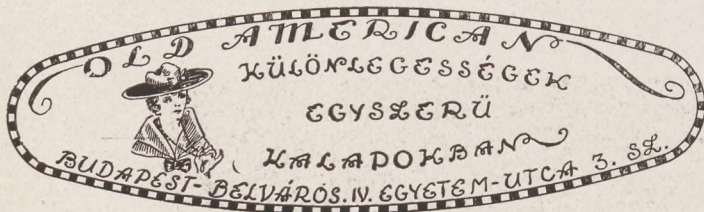 OLD AMERICAN
KÜLÖNLEGESSÉGEK
EGYSZERÜ
KALAPOKBAN
BUDAPEST-BELVÁROS. IV. EGYETEM-UTCA 3. SZ.